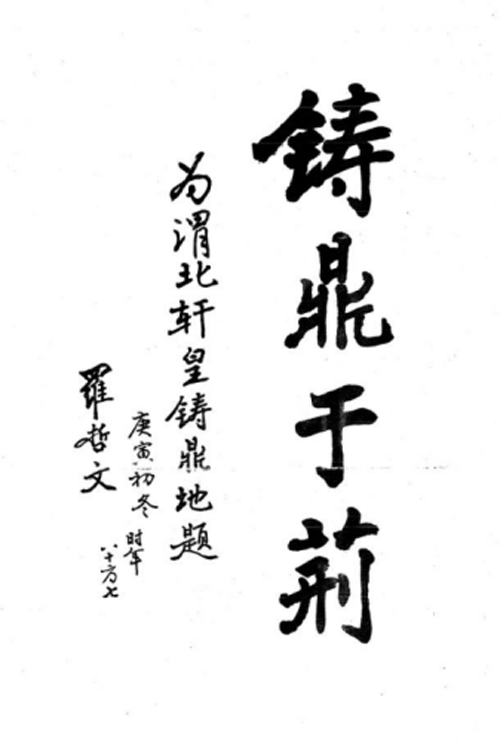 铸鼎于荆
为渭北轩皇铸鼎地题
庚寅初冬
时年
八十有七
羅哲文